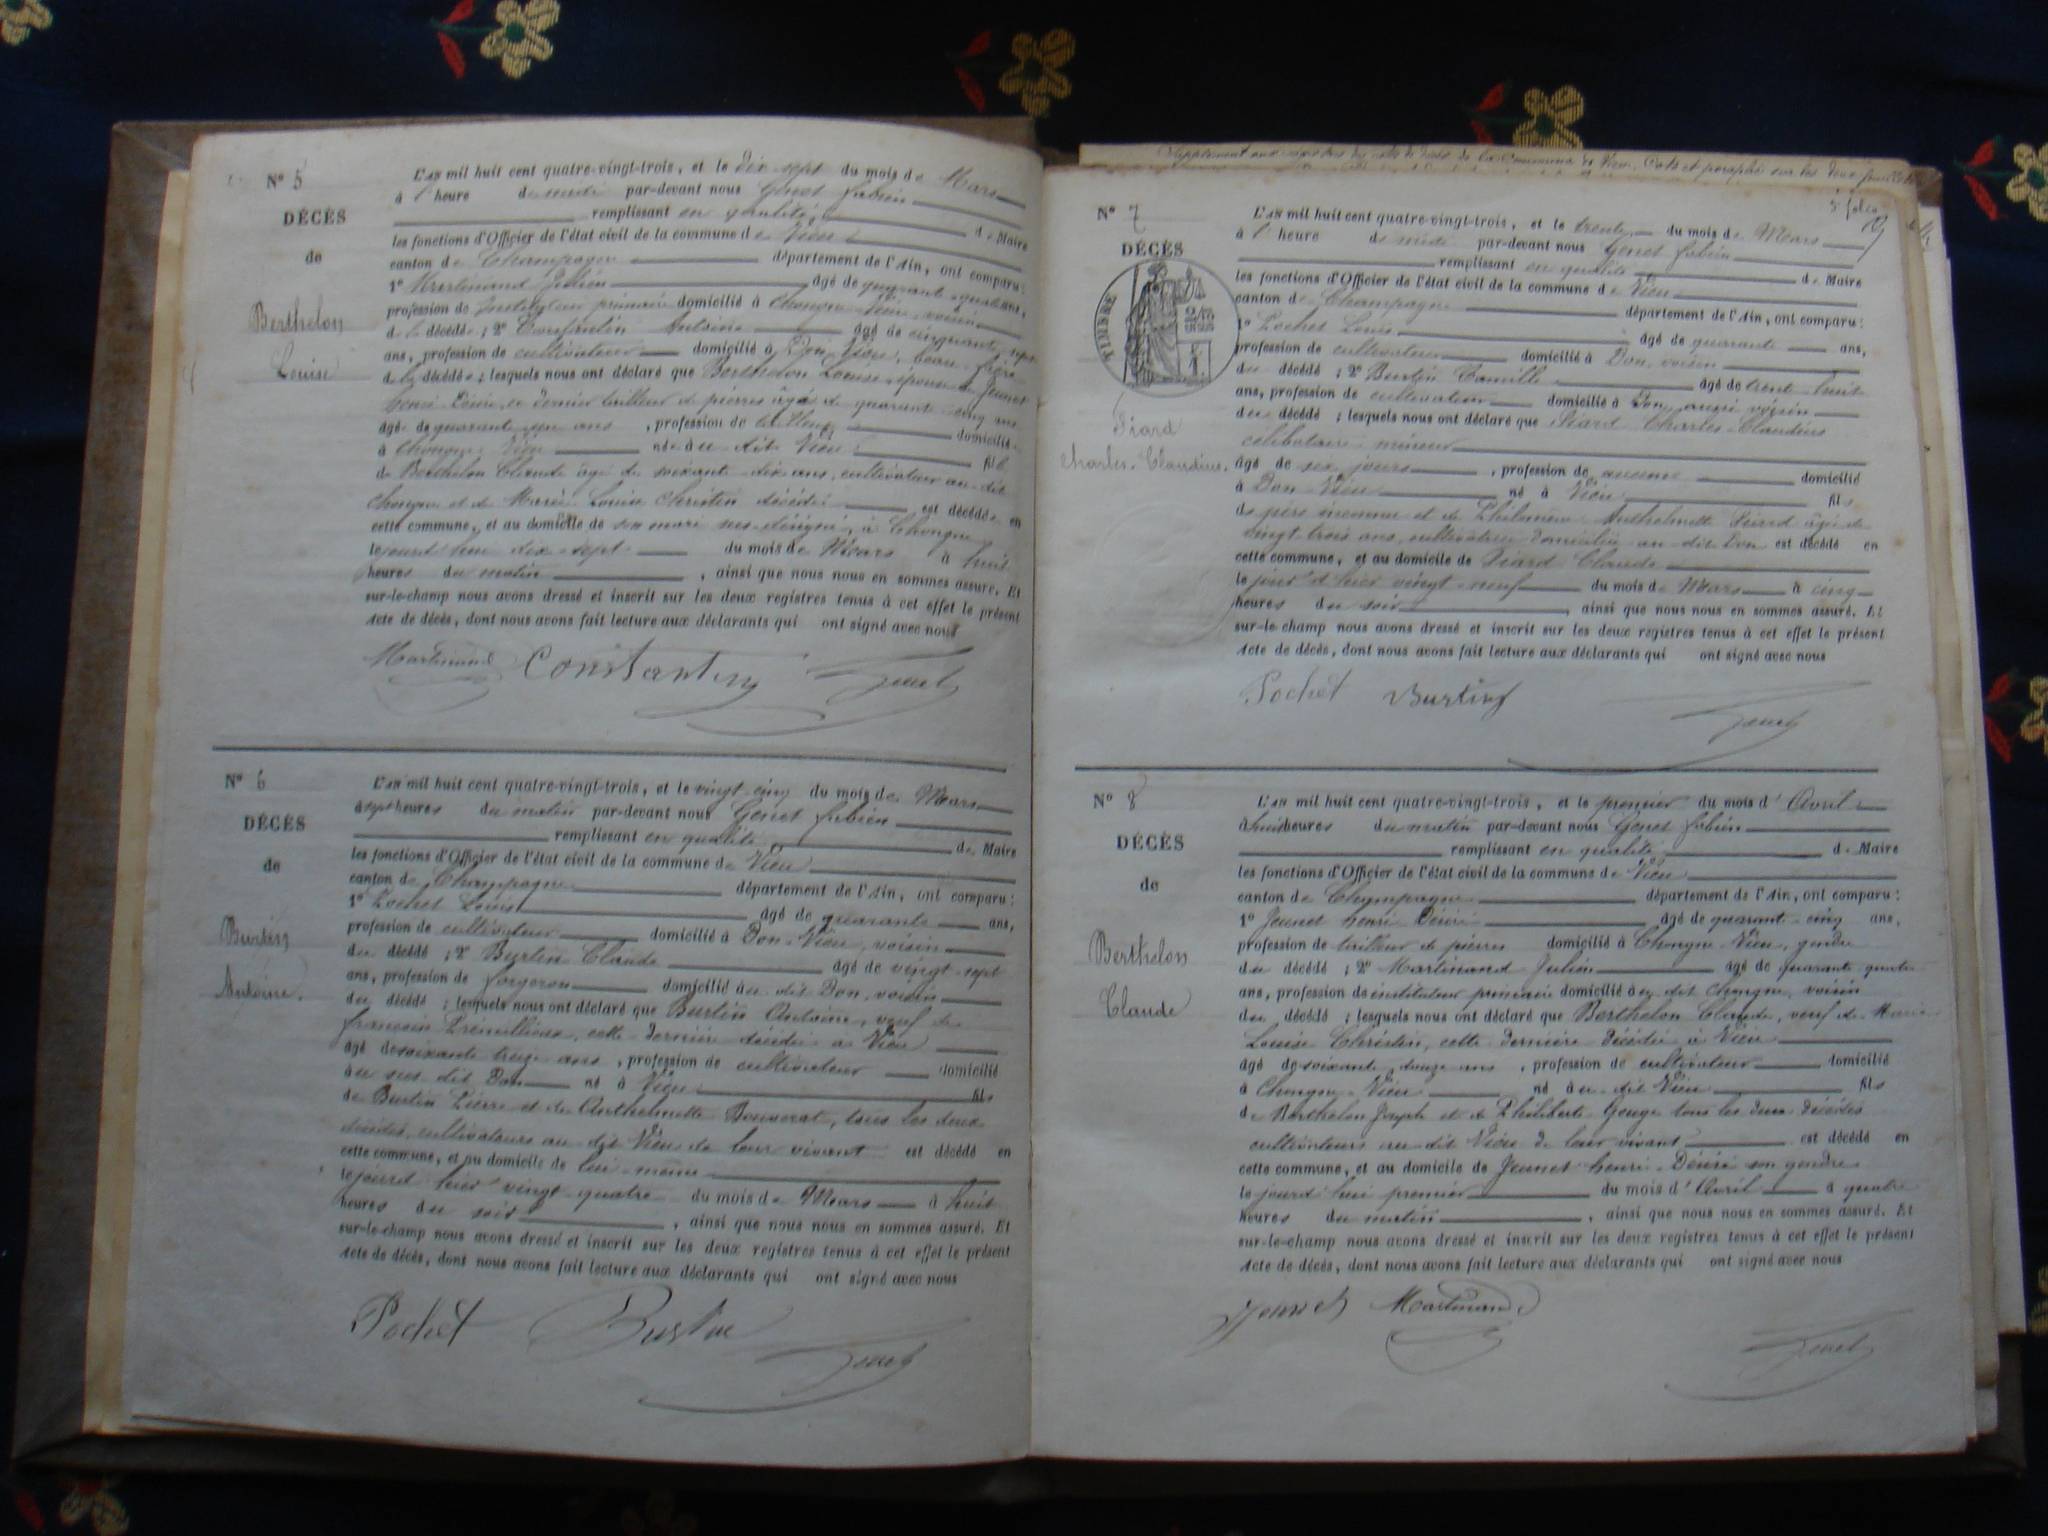 N° 5
DÉCÈS
de
Berthelon
Louise
L'an mil huit cent quatre-vingt-trois, et le dix sept du mois de Mars
à 1 heure de midi par-devant nous Genet fabien
remplissant en qualité de Maire
les fonctions d'Officier de l'état civil de la commune de Vieu
canton de Champagne département de l'Ain, ont comparu:
1° Martinand Julien âgé de quarante quatre ans,
profession de instituteur primaire domicilié à Chongne Vieu, voisin
de la décédée; 2° Constantin Antoine âgé de cinquante sept
ans, profession de cultivateur domicilié à Don, Vieu, beau-frère
de la décédée; lesquels nous ont déclaré que Berthelon Louise épouse de Jeunet
henri Désiré, ce dernier tailleur de pierres âgé de quarante cinq ans
âgée de quarante ans, profession de domicilié
à Chongne Vieu née au dit Vieu fille
de Berthelon Claude âgé de soixante dix ans, cultivateur au dit
Chongne et de Marie Louise Christin décédée est décédée en
cette commune, et au domicile de son mari sus-désigné, à Chongne
le jourd'hui dix-sept du mois de Mars à huit
heures du matin, ainsi que nous nous en sommes assuré. Et
sur-le-champ nous avons dressé et inscrit sur les deux registres tenus à cet effet le présent
Acte de décès, dont nous avons fait lecture aux déclarants qui ont signé avec nous
Martinand Constantin Genet
N° 6
DÉCÈS
de
Burtin
Antoine.
L'an mil huit cent quatre-vingt-trois, et le vingt cinq du mois de Mars
à sept heures du matin par-devant nous Genet fabien
remplissant en qualité de Maire
les fonctions d'Officier de l'état civil de la commune de Vieu
canton de Champagne département de l'Ain, ont comparu:
1° Pochet Louis âgé de quarante ans,
profession de cultivateur domicilié à Don-Vieu, voisin
du décédé; 2° Burtin Claude âgé de vingt-sept
ans, profession de forgeron domicilié au dit Don, voisin
du décédé; lesquels nous ont déclaré que Burtin Antoine, veuf de
cette dernière décédée à Vieu
âgé de soixante treize ans, profession de cultivateur domicilié
au sus-dit Don né à Vieu fils
de Burtin Pierre et de Anthelmette Bonnerat, tous les deux
décédés, cultivateurs au dit Vieu de leur vivant est décédé en
cette commune, et au domicile de lui-même
le jourd'hier vingt quatre du mois de Mars à huit
heures du soir, ainsi que nous nous en sommes assuré. Et
sur-le-champ nous avons dressé et inscrit sur les deux registres tenus à cet effet le présent
Acte de décès, dont nous avons fait lecture aux déclarants qui ont signé avec nous
Pochet Burtin Genet
Supplément aux registres des actes de décès de la Commune de Vieu. Coté et paraphé sur les deux feuillets
5e folio
N° 7
DÉCÈS
TIMBRE
Piard
Charles-Claudius.
L'an mil huit cent quatre-vingt-trois, et le trente du mois de Mars
à 1 heure de midi par-devant nous Genet fabien
remplissant en qualité de Maire
les fonctions d'Officier de l'état civil de la commune de Vieu
canton de Champagne département de l'Ain, ont comparu:
1° Pochet Louis âgé de quarante ans,
profession de cultivateur domicilié à Don, voisin
du décédé; 2° Burtin Camille âgé de trent-huit
ans, profession de cultivateur domicilié à Don, aussi voisin
du décédé; lesquels nous ont déclaré que Piard Charles-Claudius
célibataire mineur
âgé de six jours, profession de aucune domicilié
à Don-Vieu né à Vieu fils
de père inconnu et de Philomène Anthelmette Piard âgée de
vingt trois ans, cultivatrice domiciliée au dit Don est décédé en
cette commune, et au domicile de Piard Claude
le jour d'hier vingt-neuf du mois de Mars à cinq
heures du soir, ainsi que nous nous en sommes assuré. Et
sur-le-champ nous avons dressé et inscrit sur les deux registres tenus à cet effet le présent
Acte de décès, dont nous avons fait lecture aux déclarants qui ont signé avec nous
Pochet Burtin Genet
N° 8
DÉCÈS
de
Berthelon
Claude
L'an mil huit cent quatre-vingt-trois, et le premier du mois d'Avril
à huit heures du matin par-devant nous Genet fabien
remplissant en qualité de Maire
les fonctions d'Officier de l'état civil de la commune de Vieu
canton de Champagne département de l'Ain, ont comparu:
1° Jeunet henri Désiré âgé de quarant-cinq ans,
profession de tailleur de pierres domicilié à Chongne-Vieu, gendre
du décédé; 2° Martinand Julien âgé de quarante quatre
ans, profession de instituteur primaire domicilié au dit Chongne, voisin
du décédé; lesquels nous ont déclaré que Berthelon Claude, veuf de Marie
Louise Christin, cette dernière décédée à Vieu
âgé de soixante douze ans, profession de cultivateur domicilié
à Chongne-Vieu né au dit Vieu fils
de Berthelon Joseph et de Philiberte Gouge tous les deux décédés
cultivateurs au dit Vieu de leur vivant est décédé en
cette commune, et au domicile de Jeunet henri-Désiré son gendre
le jourd'hui premier du mois d'Avril à quatre
heures du matin, ainsi que nous nous en sommes assuré. Et
sur-le-champ nous avons dressé et inscrit sur les deux registres tenus à cet effet le présent
Acte de décès, dont nous avons fait lecture aux déclarants qui ont signé avec nous
Jeunet Martinand Genet